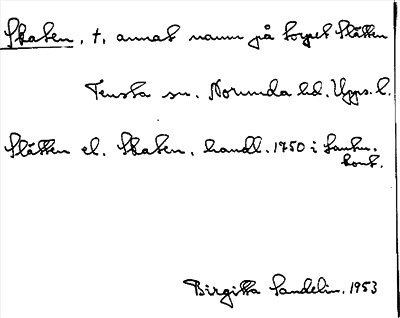 Skaten, t, annat namn på torpet Slätten
Tensta sn. Norunda hd. Upps. l.
Slätten el. Skaten, handl. 1750 i Lantm.
kont.
Birgitta Sandelin. 1953